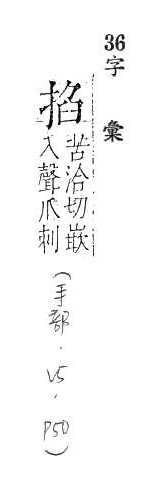 36
字彙
掐
苦洽切嵌
入聲爪刺
(手部.V5.P50)